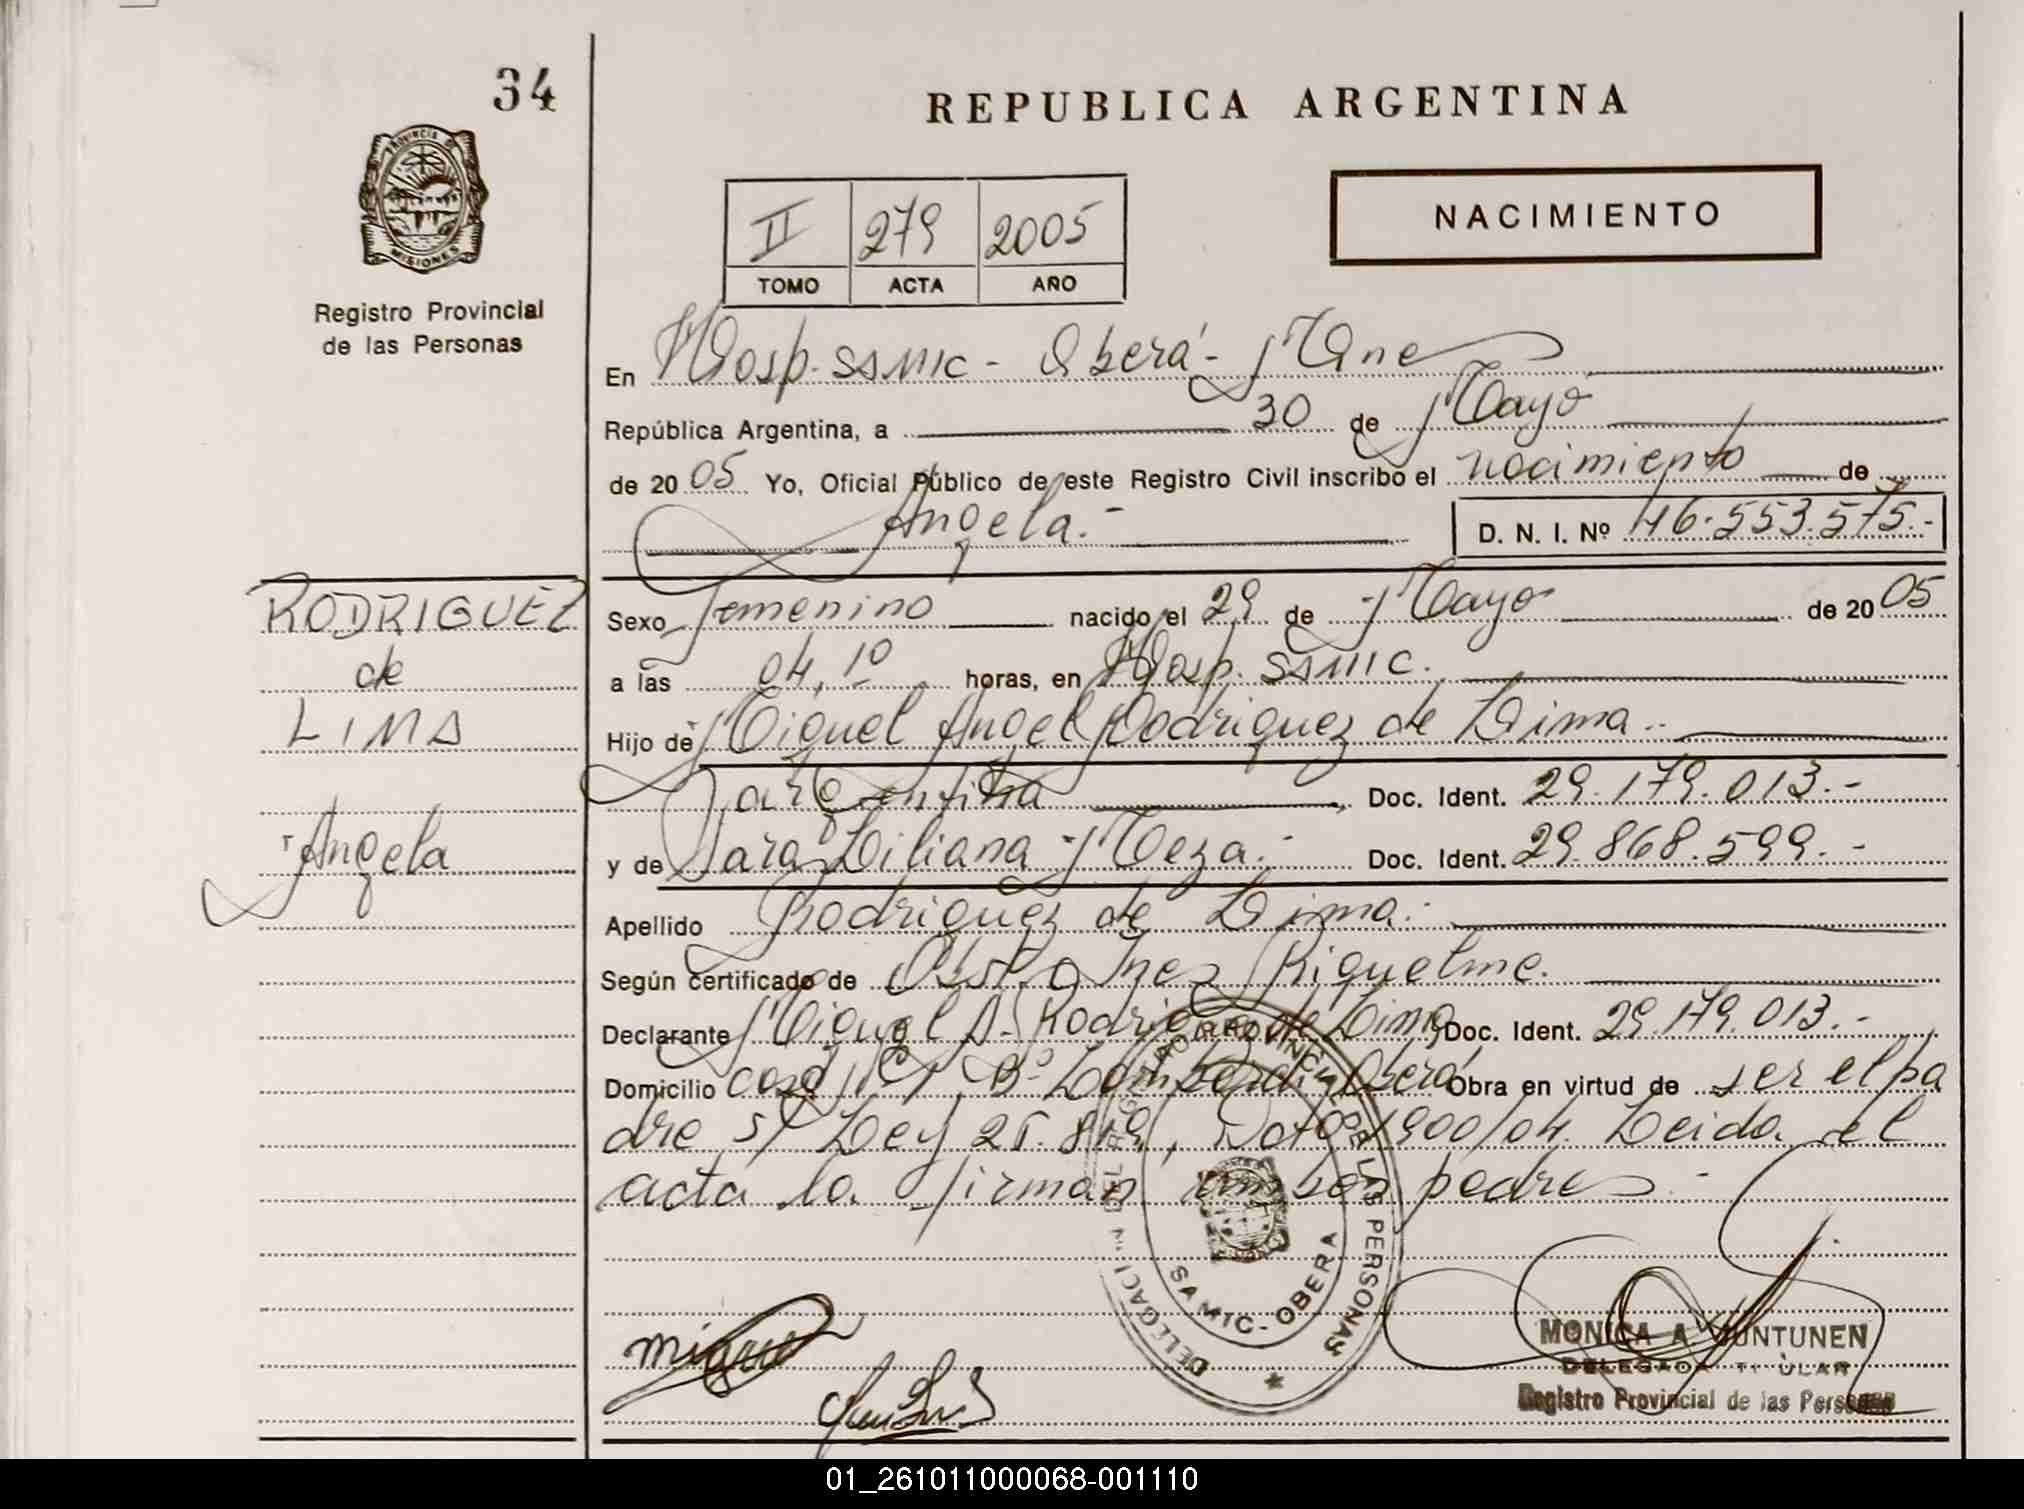 34
REPUBLICA ARGENTINA
PROVINCIA DE
MISIONES
Registro Provincial
de las Personas
NACIMIENTO
II 279 2005
TOMO ACTA AÑO
En Hosp. SAMIC - Oberá - Mnes
República Argentina, a 30 de Mayo
de 2005 Yo, Oficial Público de este Registro Civil inscribo el nacimiento de
Angela.- D. N. I. Nº 46.553.575.-
RODRIGUEZ
de
LIMA
Angela
Sexo Femenino nacido el 29 de Mayo de 2005
a las 04,10 horas, en Hosp. SAMIC.
Hijo de Miguel Angel Rodriguez de Lima.-
argentina, Doc. Ident. 29.179.013.-
y de Sara Liliana Meza.- Doc. Ident. 29.868.599.-
Apellido Rodriguez de Lima.-
Según certificado de Obst. Inez Riquelme.
Declarante Miguel A. Rodriguez de Lima Doc. Ident. 29.179.013.-
Domicilio casa Bº Oberá Obra en virtud de ser el pa
dre s/ Ley 25.819, Dcto 1900/04. Leida el
acta la firman ambos padres.-
DELEGACION DEL REGISTRO PROVINCIAL DE LAS PERSONAS
SAMIC - OBERA
MONICA A. JUNTUNEN
DELEGADA TITULAR
Registro Provincial de las Personas
01_261011000068-001110